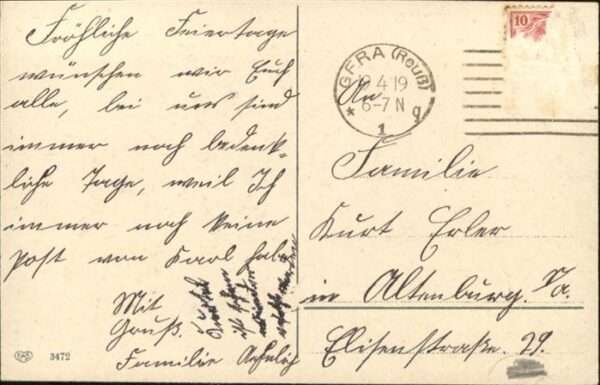 Fröhliche Feiertage
wünschen wir Euch
alle, bei uns sind
immer noch bedenk-
liche Tage, weil Ich
immer noch keine
Post von Karl habe
Mit
Gruß.
Familie
3472
GERA (Reuß)
19 4 19
6-7 N
* 1 g
10
An
Familie
Kurt Erler
in Altenburg. S/a.
Elisenstraße. 29.